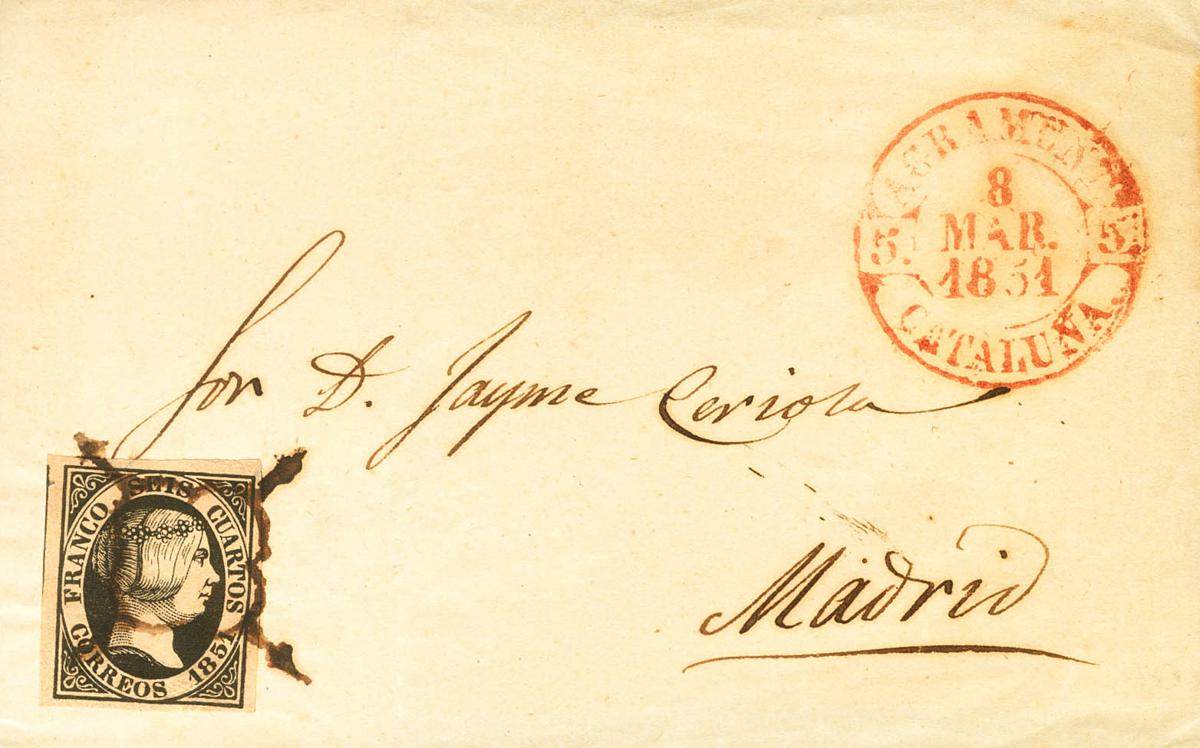 AGRAMENT
8
MAR.
1851
5. 5.
CATALUÑA.
Sor D. Jayme Ceriola
Madrid
FRANCO. SEIS CUARTOS
CORREOS 1851